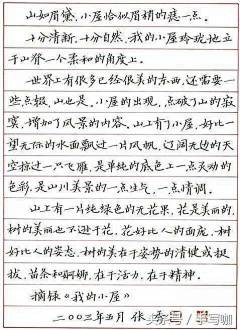 山如眉黛，小屋恰似眉梢的痣一点。
十分清新，十分自然，我的小屋玲珑地立
于山脊一个柔和的角度上。
世界上有很多已经很美的东西，还需要一
些点缀，山也是。小屋的出现，点破了山的寂
寞，增加了风景的内容。山上有了小屋，好比一
望无际的水面飘过一片风帆，辽阔无边的天
空掠过一只飞雁，是单纯的底色上一点灵动的
色彩，是山川美景的一点生气，一点情调。
山上有一片纯绿色的无花果，花是美丽的，
树的美丽也不逊于花。花好比人的面庞，树
好比人的姿态。树的美在于姿势的清健或挺
拔、苗条和婀娜，在于活力，在于精神。
摘录《我的小屋》
二〇〇三年五月 张秀
头条号／手写咖